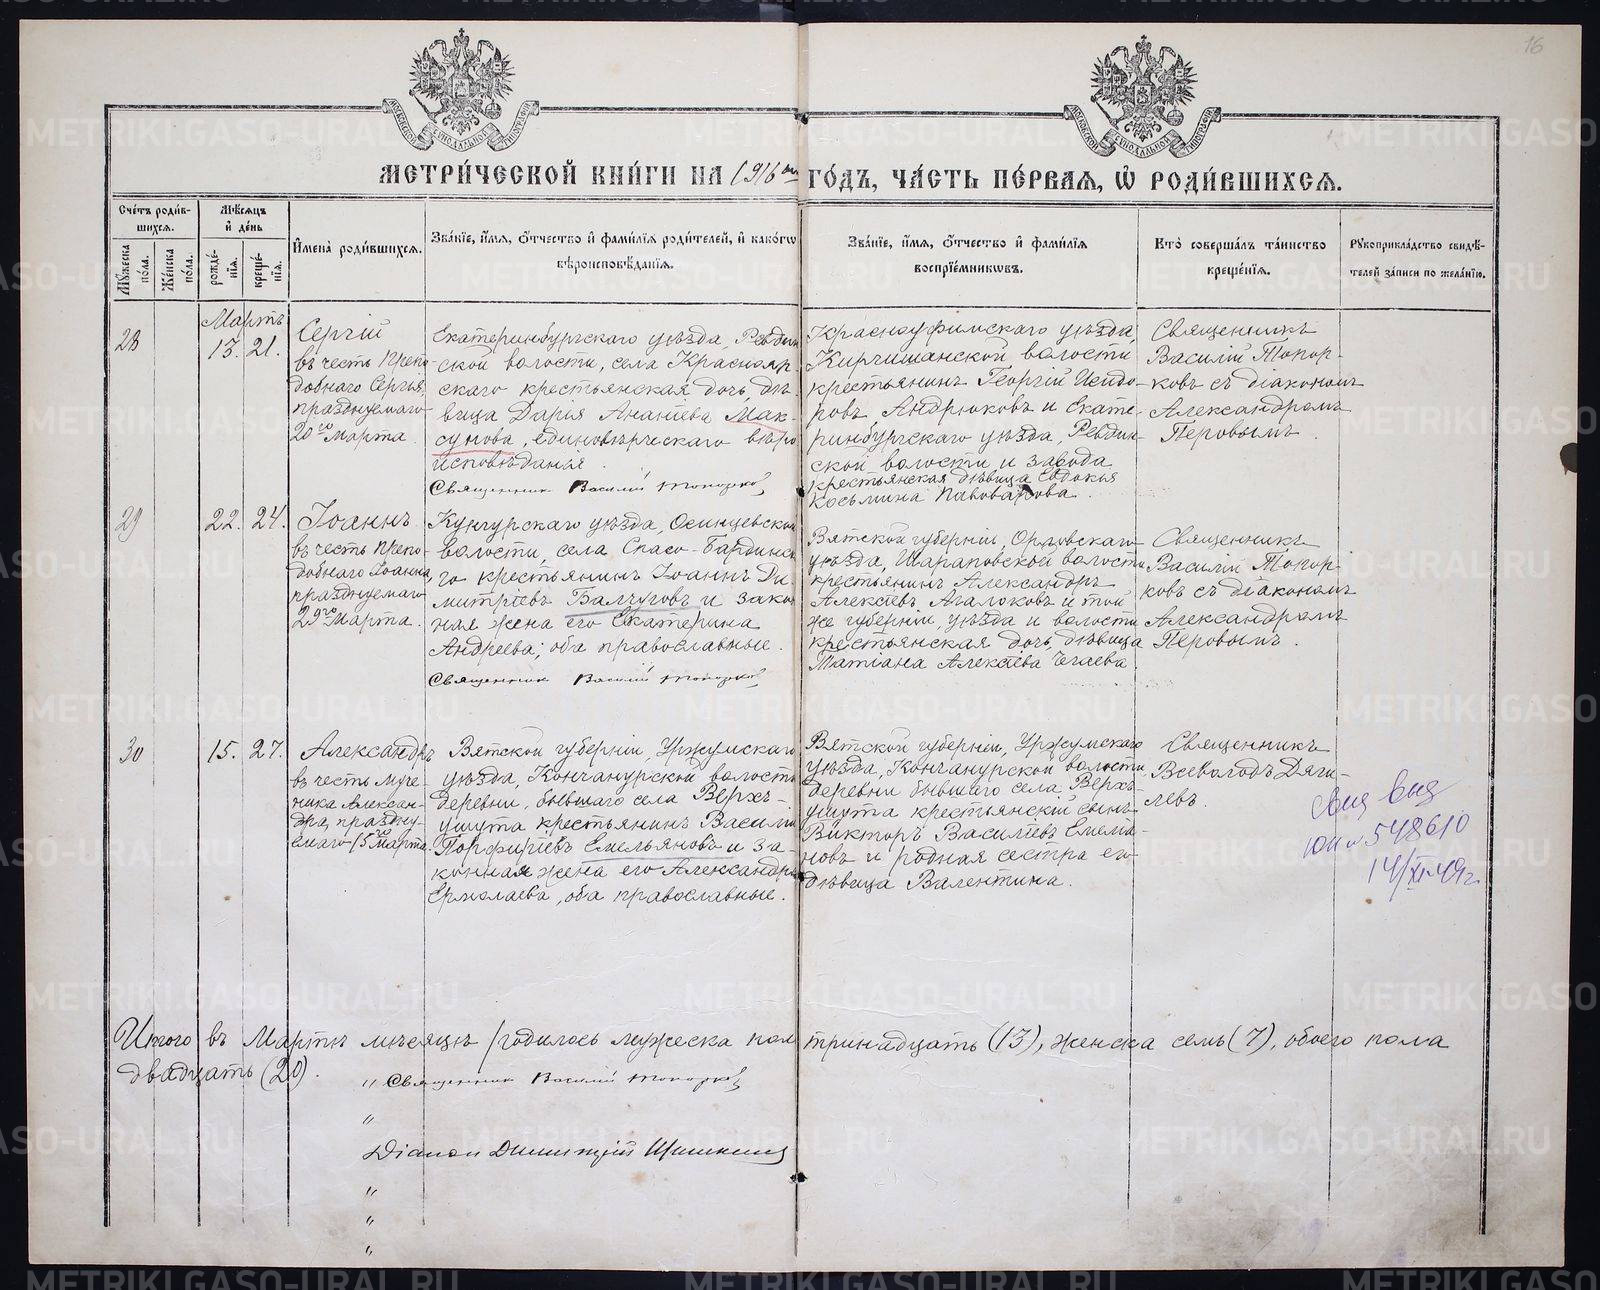 16
МЕТРИ́ЧЕСКОЙ КНИ́ГИ НА 1916 ый ГО́ДЪ, ЧА́СТЬ ПЕ́РВАЯ, Ѡ҆ РОДИ́ВШИХСЯ.
Сче́тъ роди́в-
шихся.
Мꙋ́жеска по́ла.
Же́нска по́ла.
Мѣ́сяцъ и҆ де́нь
рожде́-
нїя.
креще́-
нїя.
И҆мена̀ роди́вшихся.
Зва́нїе, и҆́мя, ѻ҆́тчество и҆ фами́лїя роди́телей, и҆ како́гѡ
вѣроисповѣ́данїя.
Зва́нїе, и҆́мя, ѻ҆́тчество и҆ фами́лїя
воспрїе́мникѡвъ.
Кто̀ соверша́лъ та́инство
креще́нїя.
Рꙋкоприкла́дство свидѣ́-
телей за́писи по жела́нїю.
28
Мартъ
13. 21.
Сергій
въ честь препо-
добнаго Сергія,
празднуемаго
20го марта.
Екатеринбургскаго уѣзда, Ревдин
ской волости, села Краснояр
скаго крестьянская дочь, дѣ-
вица Дарія Ананіева Мак-
сунова, единовѣрческаго вѣро
исповѣданія.
Священник Василій Топорков
Красноуфимскаго уѣзда,
Киргишанской волости
крестьянинъ Георгій Исидо-
ровъ Андрюковъ и Екате-
ринбургскаго уѣзда, Ревдин
ской волости и завода
крестьянская дѣвица Евдокія
Косьмина Пивоварова.
Священникъ
Василій Топор-
ковъ съ діакономъ
Александромъ
Перовымъ.
29
22. 24.
Іоаннъ
въ честь препо-
добнаго Іоанна,
празднуемаго
29го марта.
Кунгурскаго уѣзда, Осинцевской
волости, села Спасо-Бардинск
го крестьянинъ Іоаннъ Ди-
митріевъ Балчуговъ и закон
ная жена его Екатерина
Андреева; оба православные.
Священник Василій Топорков
Вятской губерніи, Орловскаго
уѣзда, Шараповской волости
крестьянинъ Александръ
Алексіевъ Агалаковъ и той
же губерніи, уѣзда и волости
крестьянская дочь, дѣвица
Татіана Алексіева Чегаева.
Священникъ
Василій Топор-
ковъ съ діакономъ
Александромъ
Перовымъ.
30
15. 27.
Александръ
въ честь муче-
ника Алексан-
дра, праздну-
емаго 15го марта.
Вятской губерніи, Уржумскаго
уѣзда, Кончанурской волости
деревни, бывшаго села Верхъ-
ушута крестьянинъ Василій
Порфиріевъ Емельяновъ и за-
конная жена его Александра
Ермолаева, оба православные.
Вятской губерніи, Уржумскаго
уѣзда, Кончанурской волости
деревни бывшаго села Верхъ-
ушута крестьянскій сынъ
Викторъ Василіевъ Емелья-
новъ и родная сестра его
дѣвица Валентина.
Священникъ
Всеволодъ Дяги-
левъ.
ЮН № 548610
14/XI 49 г.
Итого въ Мартѣ мѣсяцѣ родилось мужеска пол тринадцать (13), женска семь (7), обоего пола
двадцать (20).
" Священник Василій Топорков
"
Діакон Димитрій Шишкин
"
"
"
METRIKI.GASO-URAL.RU